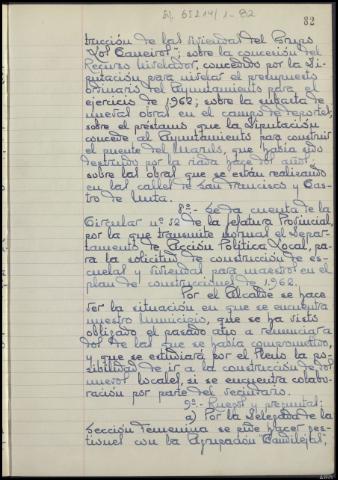 82
trucción de las viviendas del Grupo
"Los Caneiros"; sobre la concesión del
Recurso Nivelador, concedido por la Di-
putación para nivelar el presupuesto
ordinario del Ayuntamiento para el
ejercicio de 1962; sobre la subasta de
nuevas obras en el campo de deportes;
sobre el préstamo que la Diputación
concede al Ayuntamiento para construir
el puente del que había sido
destruido por la riada hace dos años;
sobre las obras que se están realizando
en las calles de San Francisco y Cas-
tro de Unta.
8º.- Se da cuenta de la
Circular nº 52 de la Jefatura Provincial,
por la que transmite normas el Depar-
tamento de Acción Política Local, pa-
ra la solicitud de construcción de es-
cuelas y viviendas para maestros en el
plan de construcciones de 1.962.
Por el Alcalde se hace
ver la situación en que se encuentra
nuestro Municipio, que se ha visto
obligado el pasado año a renunciar a
dos de las que se había comprometido,
y que se estudiará por el Pleno la po-
sibilidad de ir a la construcción de los
nuevos locales, si se encuentra colabo-
ración por parte del vecindario.
9º.- Ruegos y preguntas:
a) Por la Delegada de la
Sección Femenina se pide hacer ges-
tiones con la Agrupación "Candilejas",